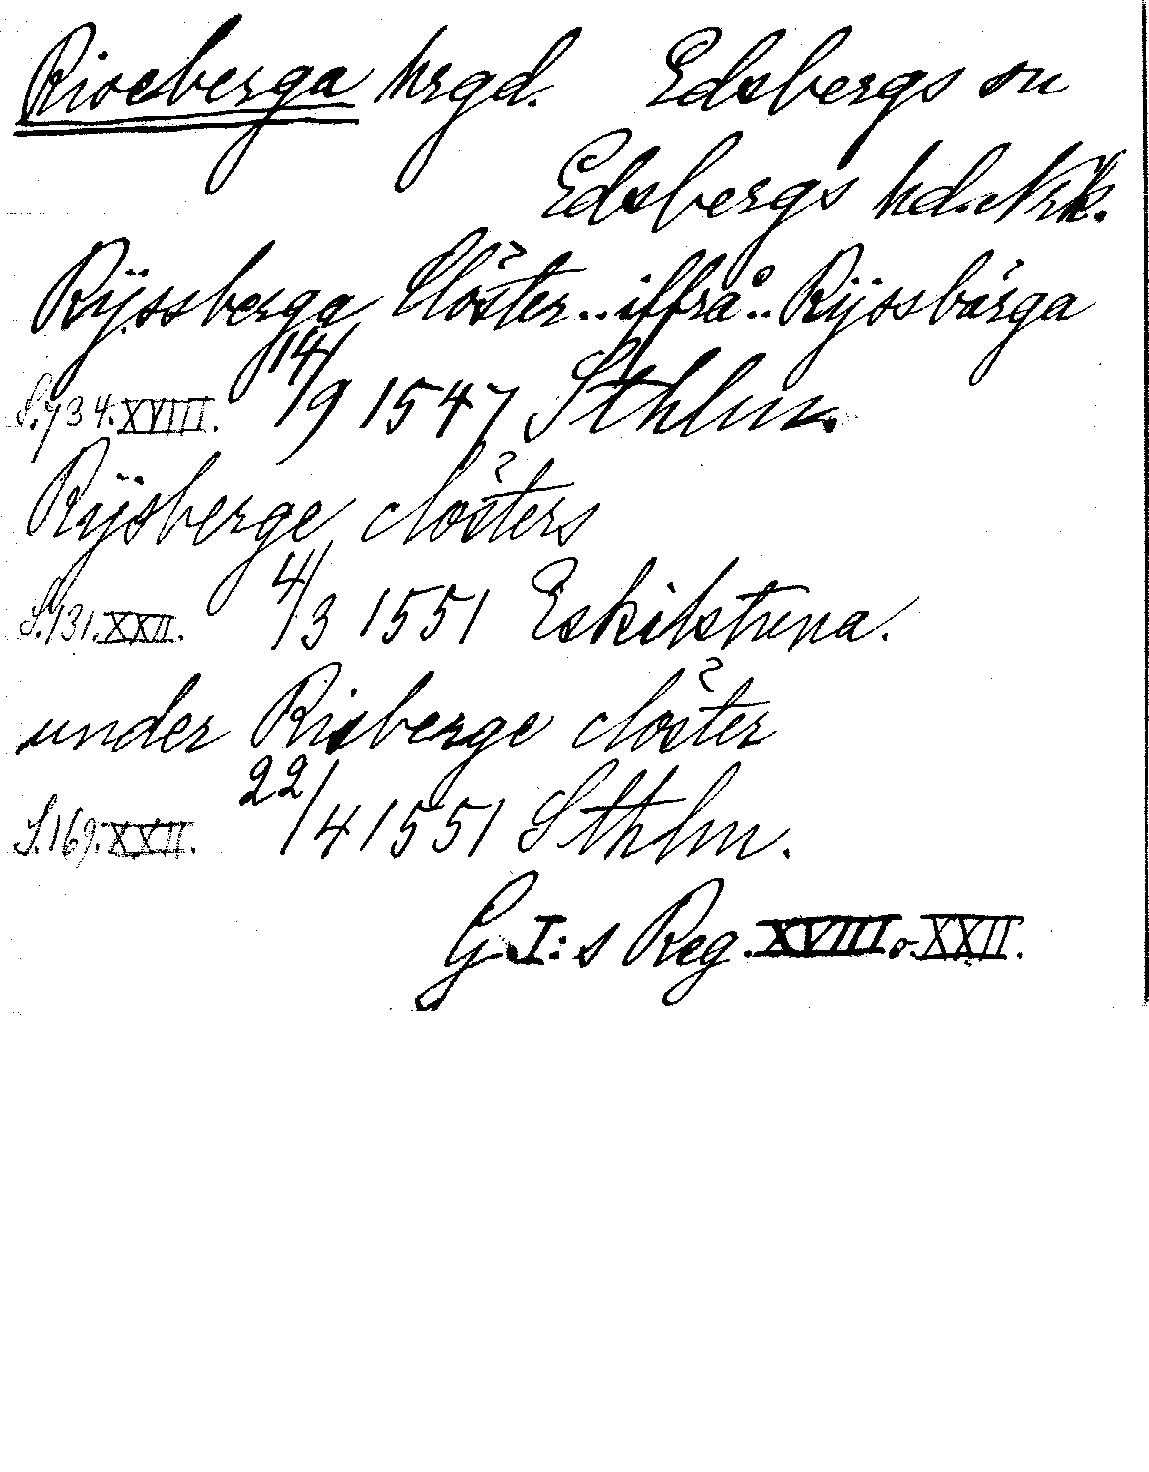 Riseberga hrgd. Edsbergs sn
Edsbergs hd. Nrk.
Rÿssberga Clöster.. iffrå.. Rÿssbärga
S. 734. XVIII. 14/9 1547 Sthlm.
Rÿsberge clösters
S. 131. XXII. 4/3 1551 Eskilstuna.
under Risberge clöster
S. 169. XXII. 22/4 1551 Sthlm.
G. I:s Reg. XVIII o. XXII.